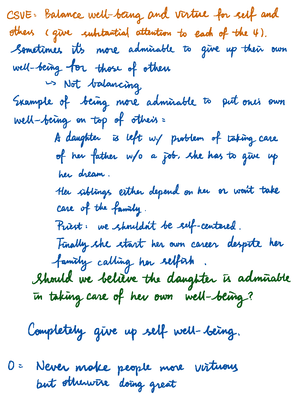 CSVE: Balance well-being and virtue for self and
others (give substantial attention to each of the 4).
Sometimes it's more admirable to give up their own
well-being for those of others
↳ Not balancing
Example of being more admirable to put one's own
well-being on top of others:
A daughter is left w/ problem of taking care
of her father w/o a job. she has to give up
her dream.
Her siblings either depend on her or won't take
care of the family.
Priest: we shouldn't be self-centered.
Finally she start her own career despite her
family calling her selfish.
Should we believe the daughter is admirable
in taking care of her own well-being?
Completely give up self well-being.
O = Never make people more virtuous
but otherwise doing great